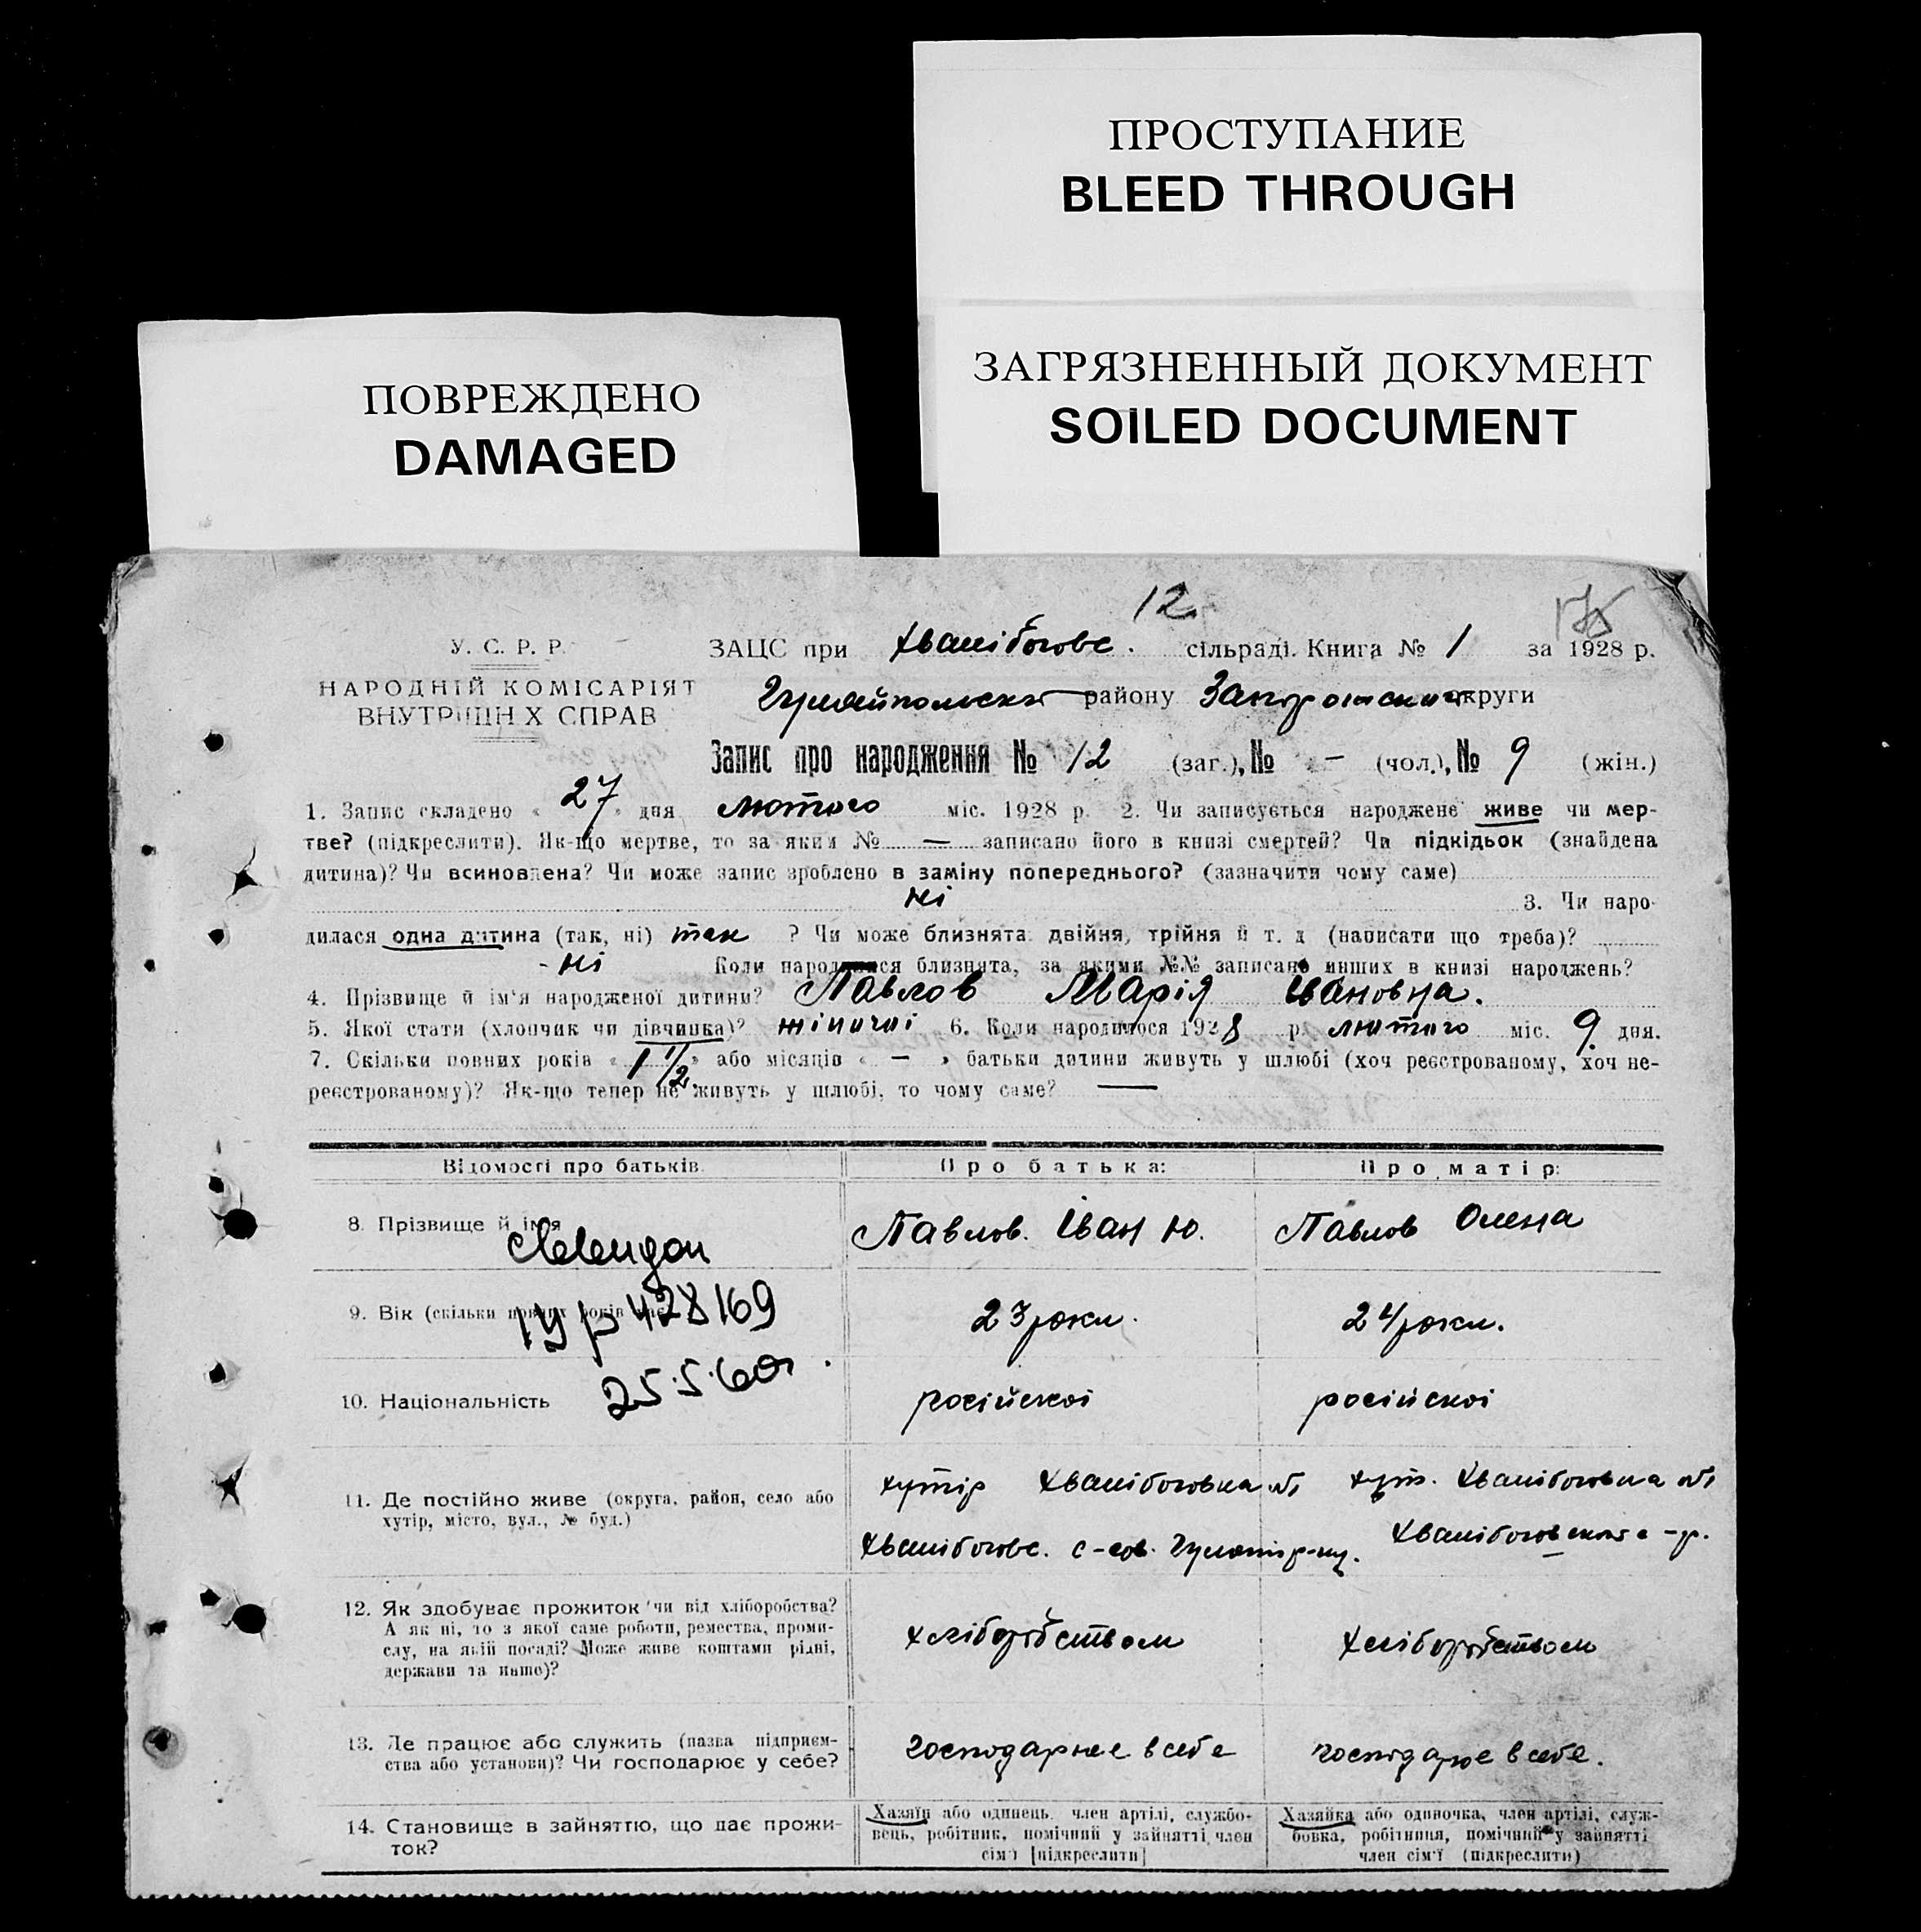 ПРОСТУПАНИЕ
BLEED THROUGH
ЗАГРЯЗНЕННЫЙ ДОКУМЕНТ
SOILED DOCUMENT
ПОВРЕЖДЕНО
DAMAGED
12
У. С. Р. Р.
НАРОДНІЙ КОМІСАРІЯТ
ВНУТРІШНІХ СПРАВ
ЗАЦС при Хвалібогове. сільраді. Книга № 1 за 1928 р.
району округи
Запис про народження № 12 (заг.), № – (чол.), № 9 (жін.)
1. Запис складено « 27 » дня лютого міс. 1928 р. 2. Чи записується народжене живе чи мер-
тве? (підкреслити). Як-що мертве, то за яким № — записано його в книзі смертей? Чи підкідьок (знайдена
дитина)? Чи всиновлена? Чи може запис зроблено в заміну попереднього? (зазначити чому саме)
ні 3. Чи наро-
дилася одна дитина (так, ні) так ? Чи може близнята двійня, трійня й т. д (написати що треба)?
- ні Коли народилися близнята, за якими №№ записано инших в книзі народжень?
4. Прізвище й ім'я народженої дитини? Павлов Марія Івановна.
5. Якої стати (хлопчик чи дівчинка)? жіночоі 6. Коли народилося 1928 р. лютого міс. 9 дня.
7. Скільки повних років « 1 1/2 » або місяців « — » батьки дитини живуть у шлюбі (хоч реєстрованому, хоч не-
реєстрованому)? Як-що тепер не живуть у шлюбі, то чому саме? —
Відомості про батьків. Про батька: Про матір:
8. Прізвище й ім'я Павлов. Іван Ю. Павлов Олена
9. Вік (скільки повних років має) 428169 23 роки. 24 роки.
25.5.60г.
10. Національність російскоі російскоі
11. Де постійно живе (округа, район, село або хутір Хвалібоговка хут. Хвалібоговка
хутір, місто, вул., № буд.)
Хвалібогове. с-сов.
12. Як здобуває прожиток чи від хліборобства? хліборобством хліборобством
А як ні, то з якої саме роботи, ремества, проми-
слу, на якій посаді? Може живе коштами рідні,
держави та инше)?
13. Де працює або служить (назва підприєм- господарює в себе господарює в себе.
ства або установи)? Чи господарює у себе?
14. Становище в зайняттю, що дає прожи-
ток?
Хазяїн або одинець, член артілі, службо-
вець, робітник, помічний у зайнятті, член
сім'ї [підкреслити]
Хазяйка або одиночка, член артілі, служ-
бовка, робітниця, помічний у зайнятті
член сім'ї (підкреслити)